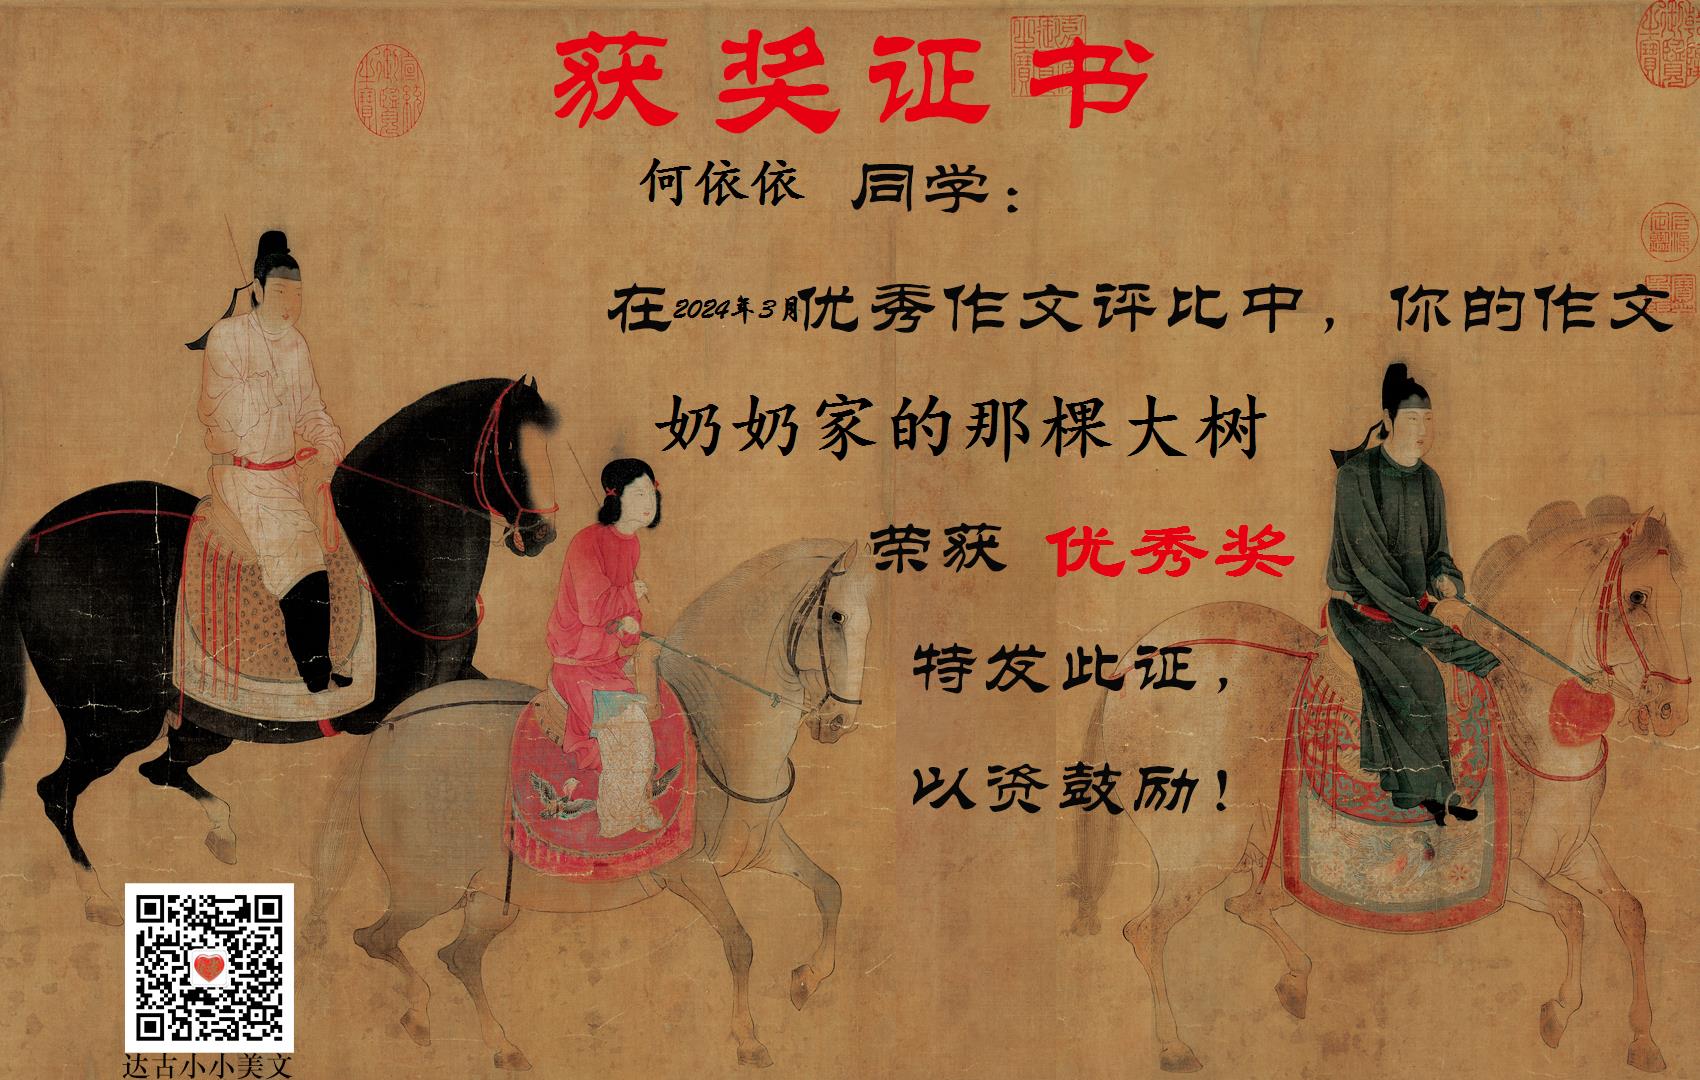 获奖证书
何依依 同学：
在2024年3月优秀作文评比中，你的作文
奶奶家的那棵大树
荣获 优秀奖
特发此证，
以资鼓励！
达古小小美文